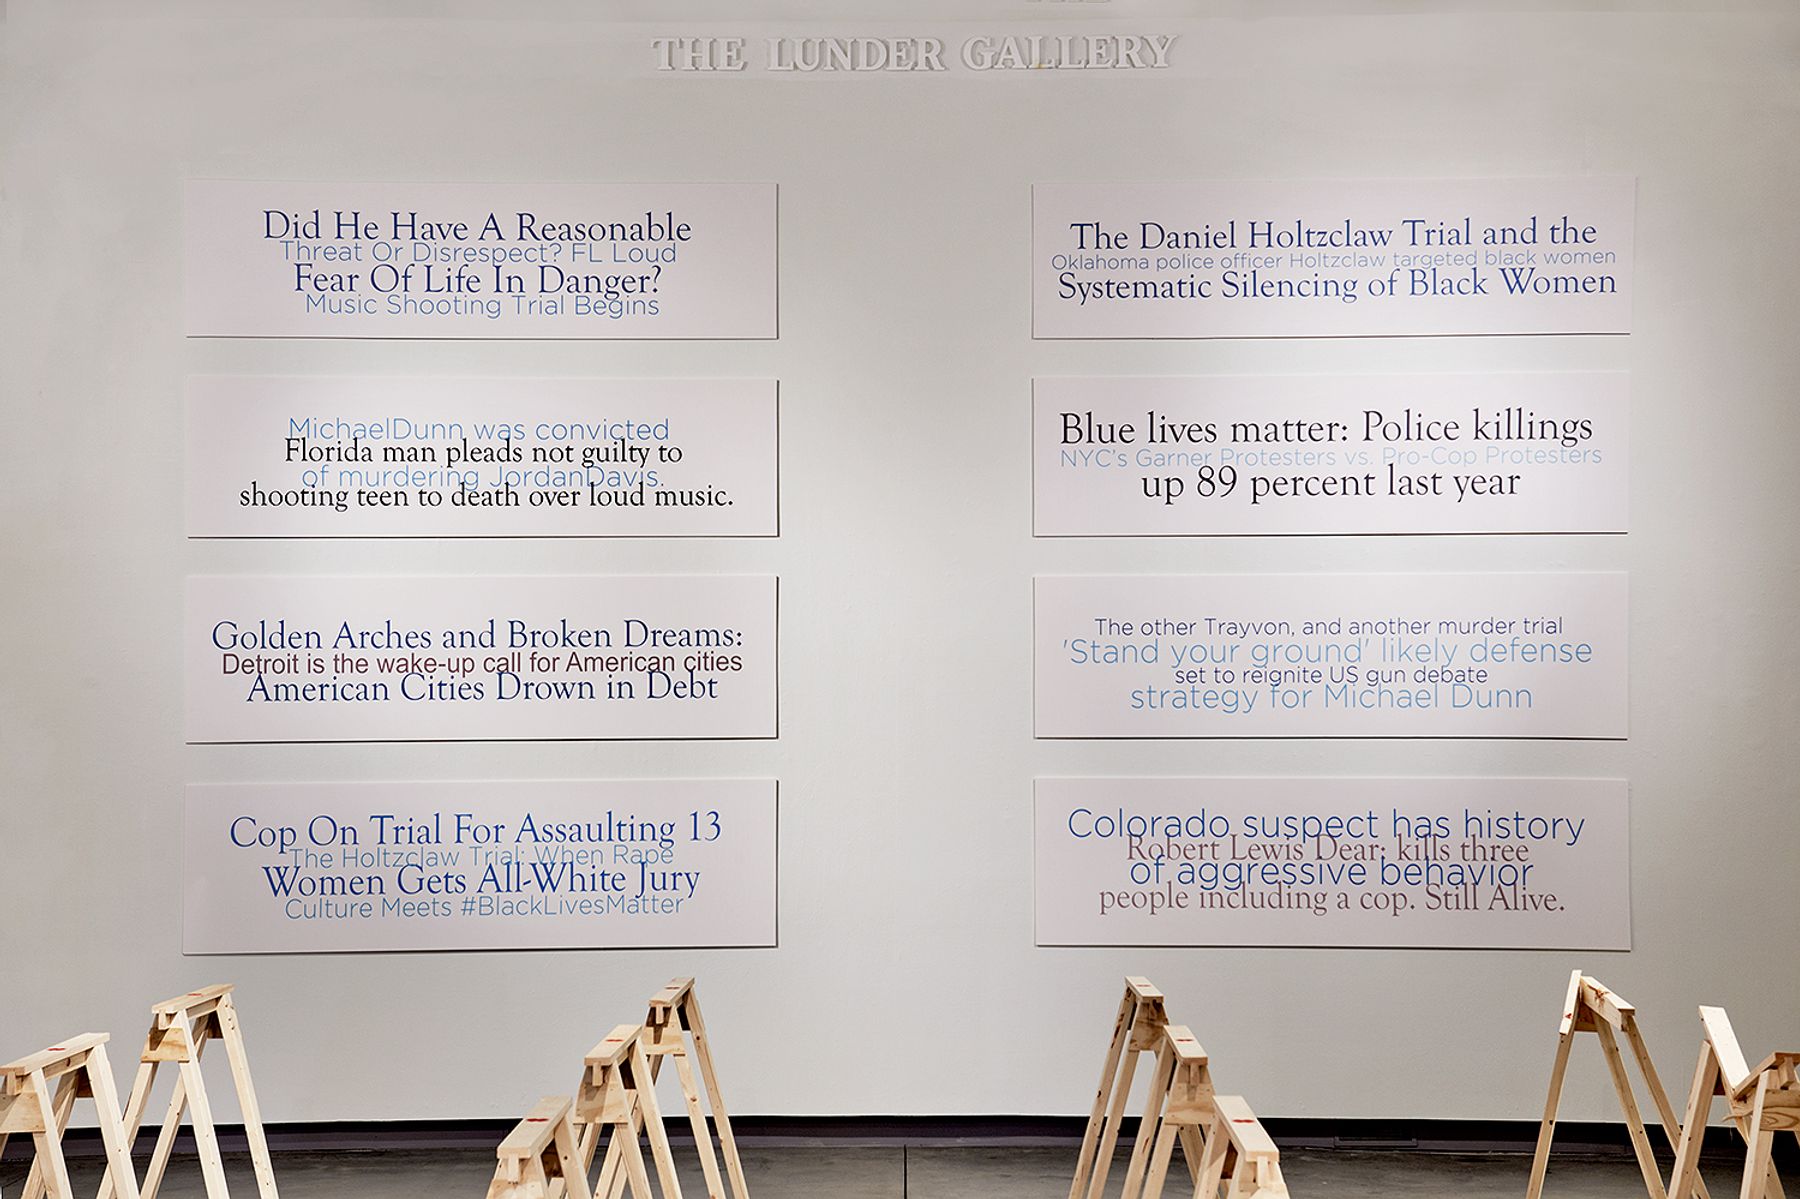 THE LUNDER GALLERY
Did He Have A Reasonable
Threat Or Disrespect? FL Loud
Fear Of Life In Danger?
Music Shooting Trial Begins
MichaelDunn was convicted
Florida man pleads not guilty to
of murdering JordanDavis.
shooting teen to death over loud music.
Golden Arches and Broken Dreams:
Detroit is the wake-up call for American cities
American Cities Drown in Debt
Cop On Trial For Assaulting 13
The Holtzclaw Trial: When Rape
Women Gets All-White Jury
Culture Meets #BlackLivesMatter
The Daniel Holtzclaw Trial and the
Oklahoma police officer Holtzclaw targeted black women
Systematic Silencing of Black Women
Blue lives matter: Police killings
NYC's Garner Protesters vs. Pro-Cop Protesters
up 89 percent last year
The other Trayvon, and another murder trial
'Stand your ground' likely defense
set to reignite US gun debate
strategy for Michael Dunn
Colorado suspect has history
Robert Lewis Dear: kills three
of aggressive behavior
people including a cop. Still Alive.